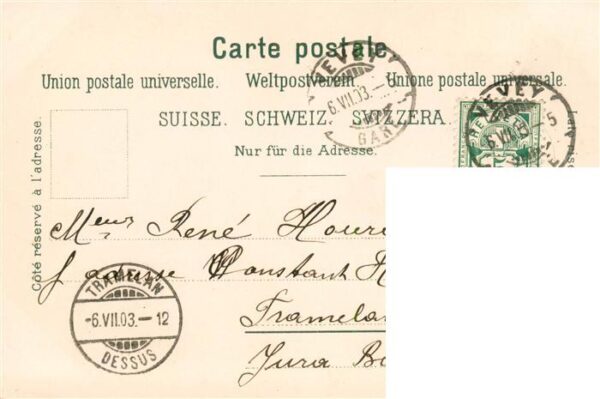 Carte postale.
Union postale universelle. Weltpostverein. Unione postale universale.
SUISSE. SCHWEIZ. SVIZZERA.
Nur für die Adresse.
Côté réservé à l'adresse.
VEVEY
6.VII.03.
GARE
VEVEY
6.VII.03
TRAMELAN
-6.VII.03.-12
DESSUS
René
Constant
Tramela
Jura